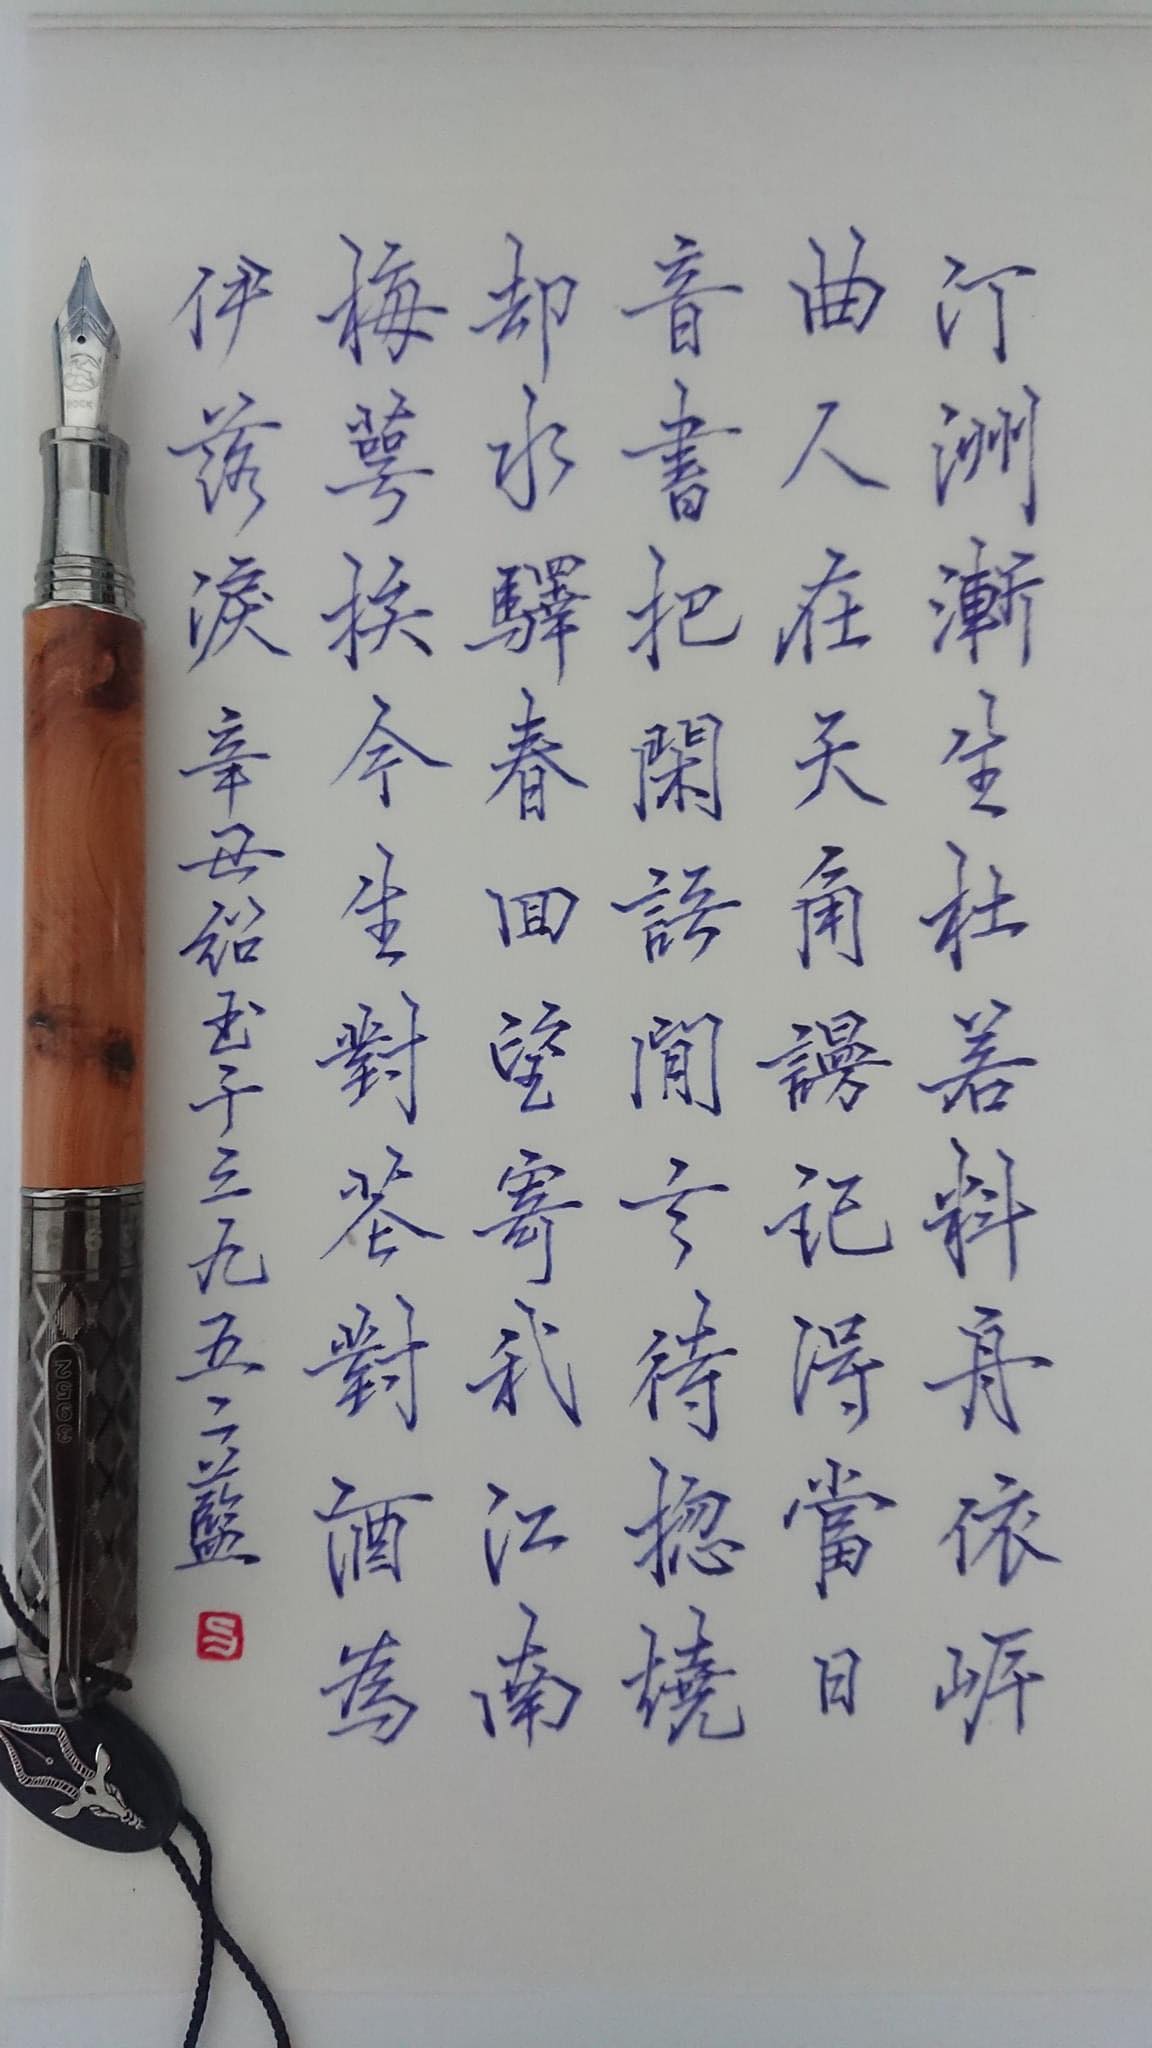 汀洲漸生杜若料舟依岸
曲人在天角謾記得當日
音書把閑語閒言待揔燒
却水驛春回望寄我江南
梅萼拚今生對花對酒為
伊落淚 辛丑玉子三九五二藍
BOCK
2593